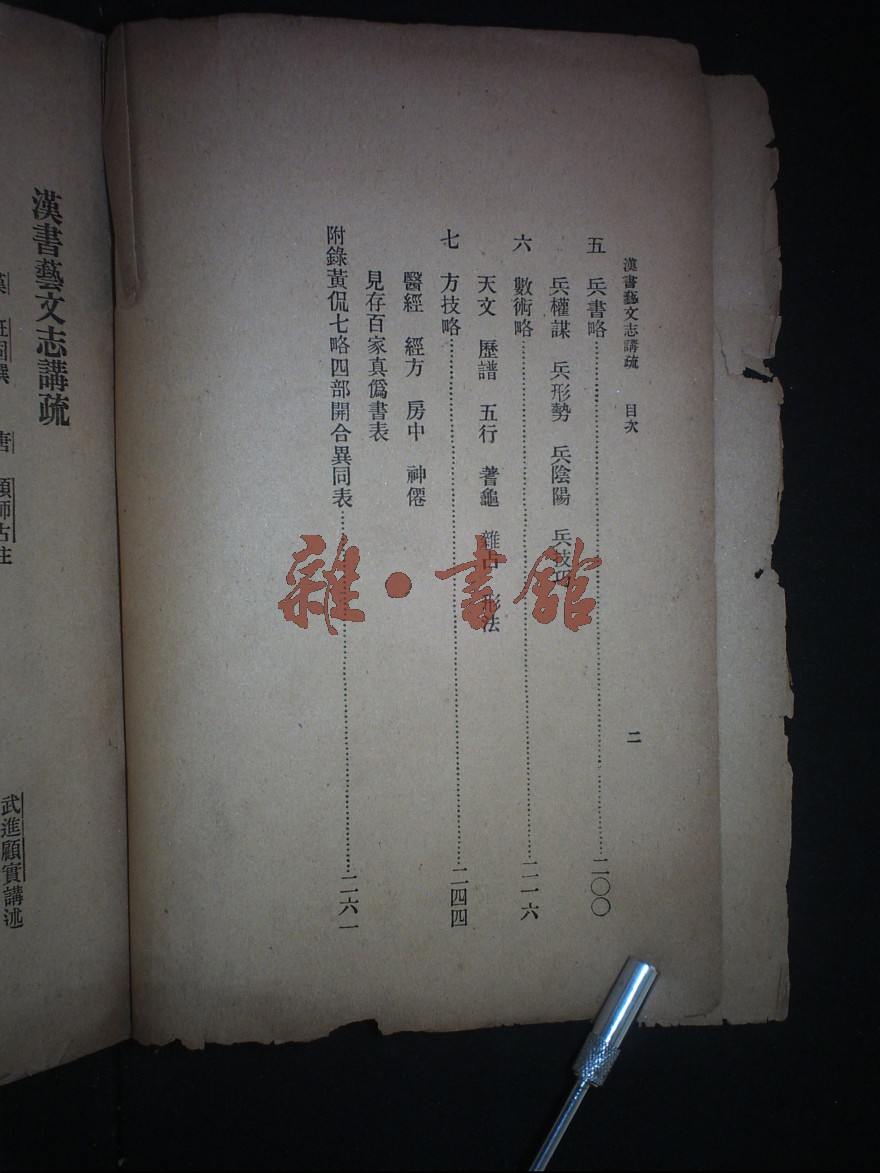 漢書藝文志講疏 目次 二
五 兵書略 二〇〇
兵權謀 兵形勢 兵陰陽 兵技巧
六 數術略 二一六
天文 歷譜 五行 蓍龜 雜占 形法
七 方技略 二四四
醫經 經方 房中 神僊
見存百家真僞書表
附錄黃侃七略四部開合異同表 二六一
雜·書館
漢書藝文志講疏
漢 班固撰 唐 顏師古注
武進顧實講述